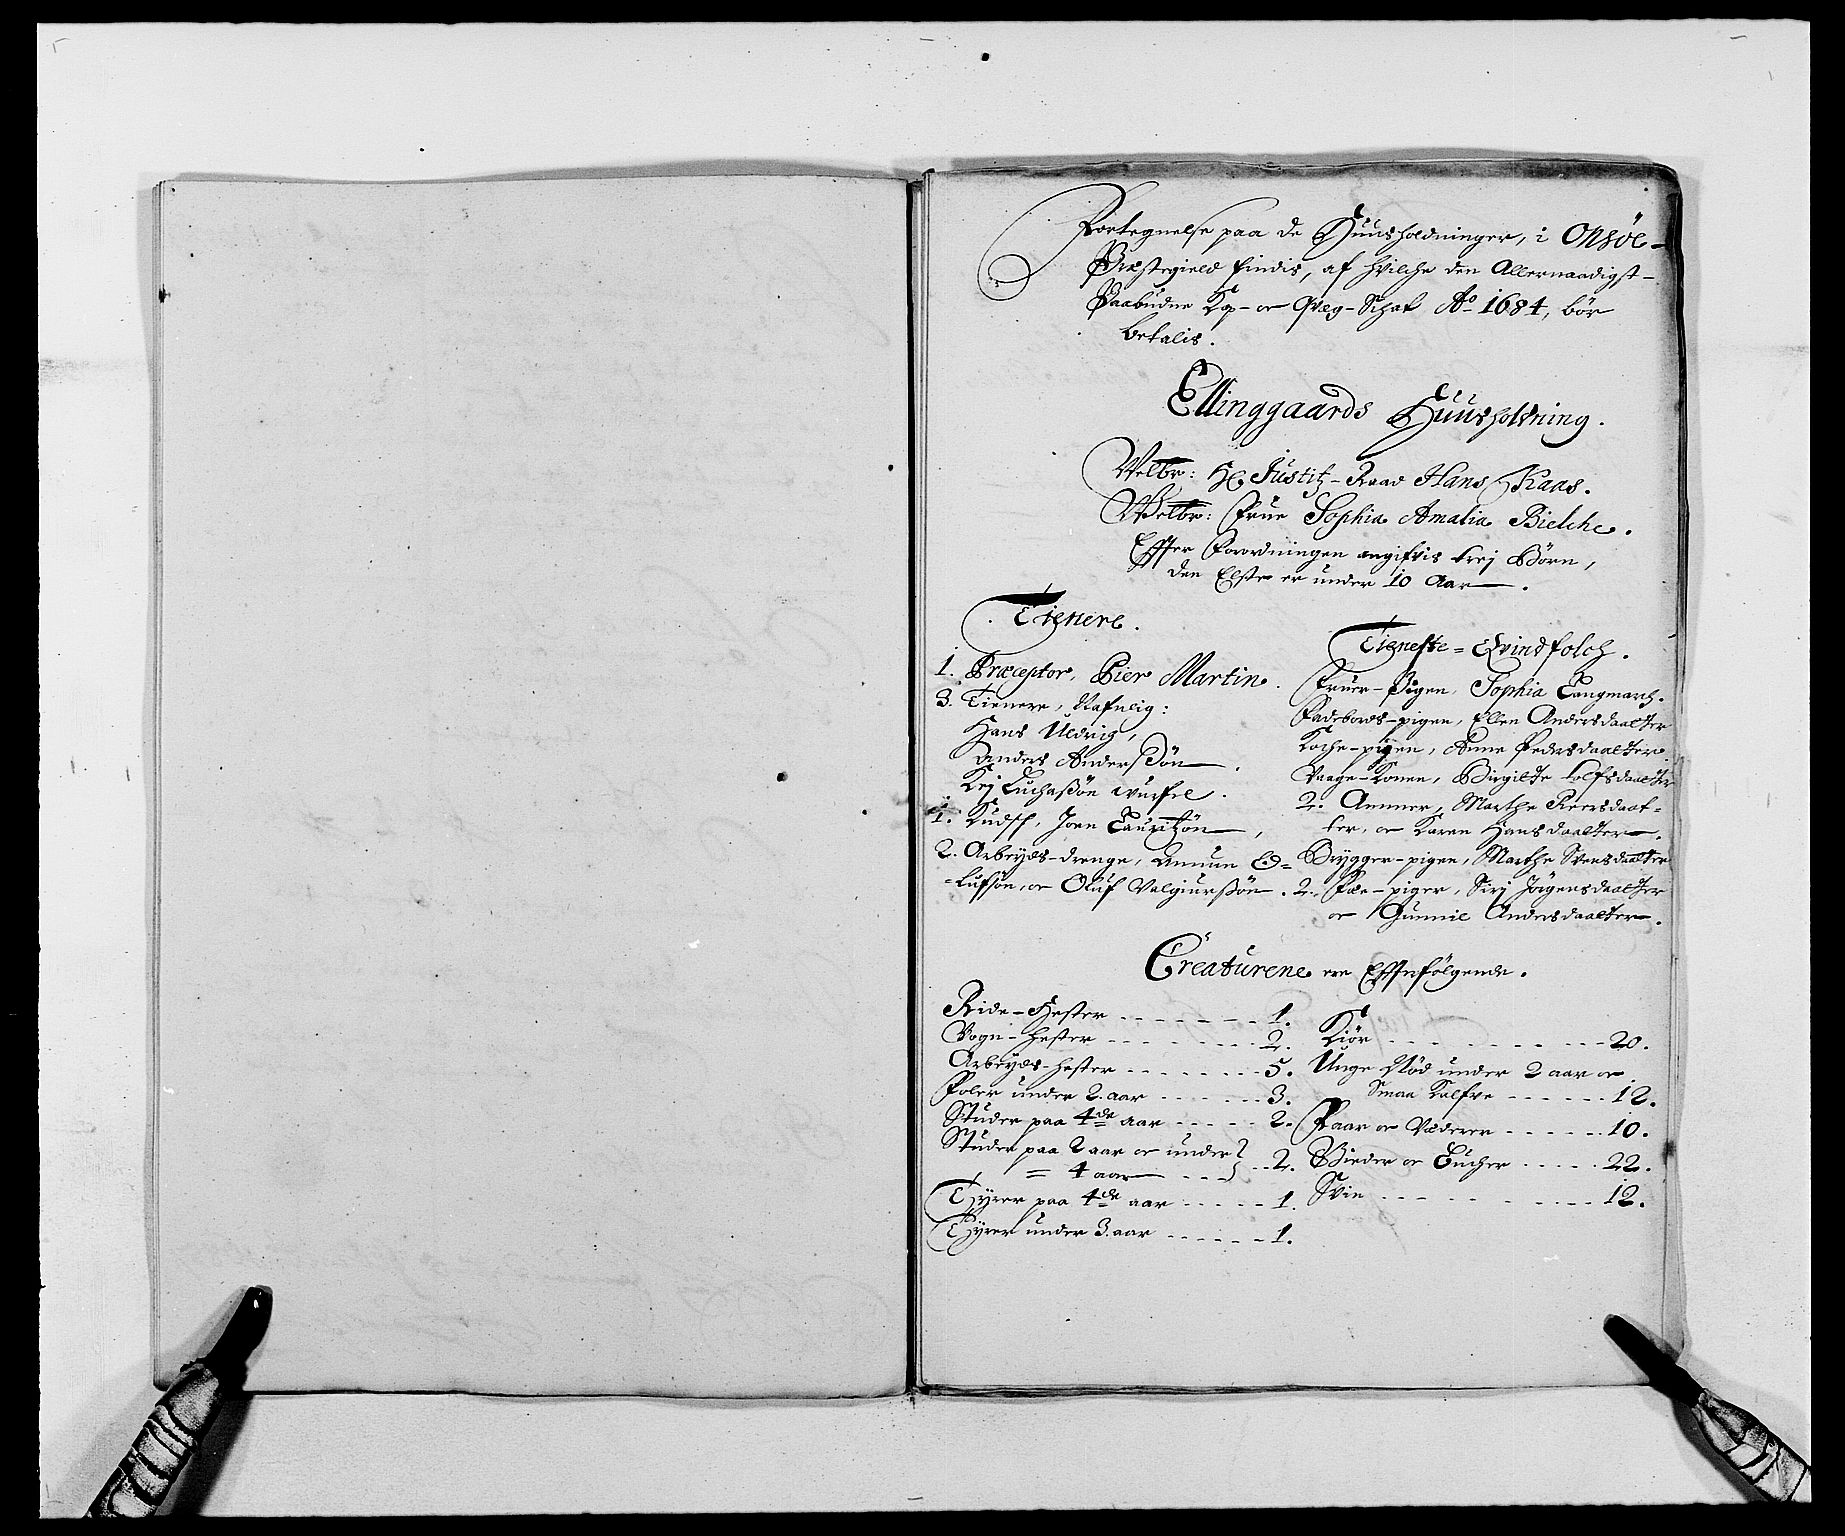 Fortegnelse paa de Huusholdninger, i Onsöe-
Præstegield findis, af hvilche den Allernaadigst-
Paabudne Kop- oc Qvæg-Schat Ao 1684, bör
betalis.
Ellinggaards Huusholdning.
Velbr: Hr Justitz-Raad Hans Kaas.
Welbr: Frue Sophia Amalia Bielche.
Effter Forordningen angifvis trej Börn,
den Elste er under 10 Aar.
Tienere.
1. Præceptor, Pier Martin.
3. Tienere, Nafnlig:
Hans Uldrig,
Anders Anderßön.
Kej Luchaßön
1. Kudsk, Joen Lauritzön,
2. Arbeyds-drenge, Amun O=
=lufsön, oc Oluf Valgiurßön.
Tieneste=Qvindfolch.
Fruer-Pigen, Sophia Langmarch.
Fadebords-pigen, Ellen Andersdaatter
Koche-pigen, Anne Pedersdaatter
Vaage-Konen, Birgitte Tolfsdaatter
2. Ammer, Marthe Reersdaat=
ter, oc Karen Hansdaatter.
Brygger-pigen, Marthe Svensdaatter
2. Fæe-piger, Sirj Jörgensdaatter
oc Gunnil Andersdaatter.
Creaturene ere Efterfölgende.
Ride-Hester - - - - - - 1.
Vogn-hester - - - - - - 2.
Arbeyds-hester - - - - - - 5.
Foler under 2. aar - - - - - 3.
Studer paa 4de aar - - - - - 2.
Studer paa 2 aar oc under
= 4 aar - - - 2.
Tyrer paa 4de aar - - - - - 1.
Tyrer under 3. aar - - - - - 1.
Kiör - - - - - - - - 20.
Unge Nöd under 2 aar oc
Smaa Kalfve - - - - - - 12.
Faar oc Væderer - - - - - 10.
Gieder oc Bucher - - - - - 22.
Svin - - - - - - - - 12.